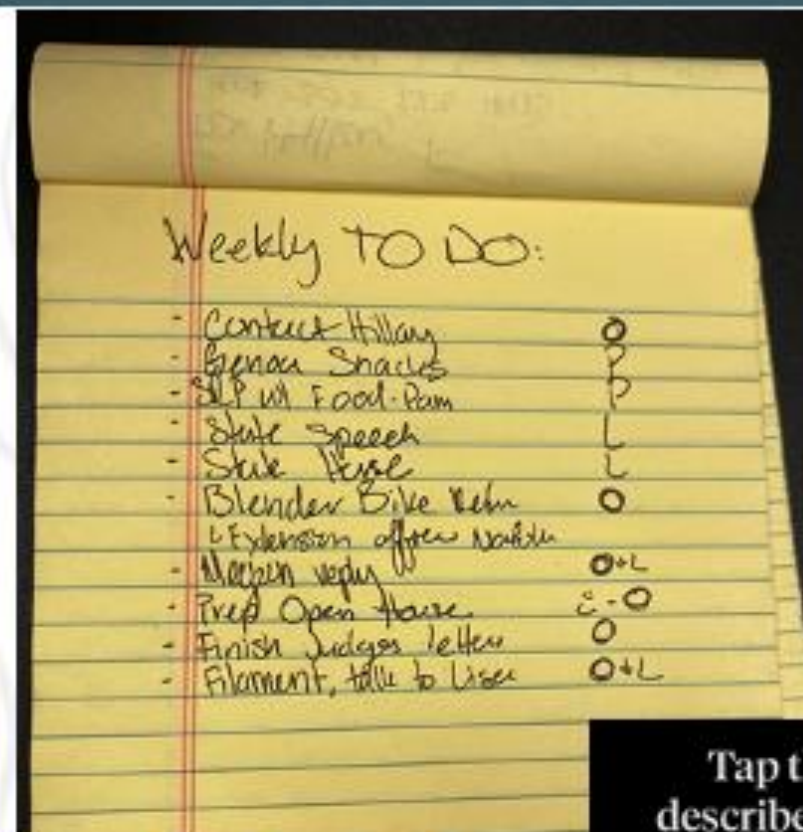 Weekly TO DO:
- Contact Hillary O
- Snacks P
- SLP w/ Food-Pam P
- State Speech L
- State House L
- Blender Bike Return O
Extension office
- Meghen reply O+L
- Prep Open House - O
- Finish Judges letters O
- Filament, talk to Lisa O+L
Tap t
describe